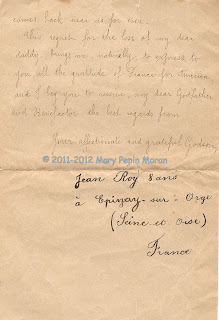 comes back near us for ever.
This regret for the loss of my dear
daddy brings me, naturally, to express to
you all the gratitude of France for America
and I beg you to receive, my dear Godfather
and Benefactor the best regards from
Your affectionate and grateful Godson,
© 2011-2012 Mary Pepin Moran
Jean Roy 8 ans
à Epinay-sur-Orge
(Seine et Oise)
France